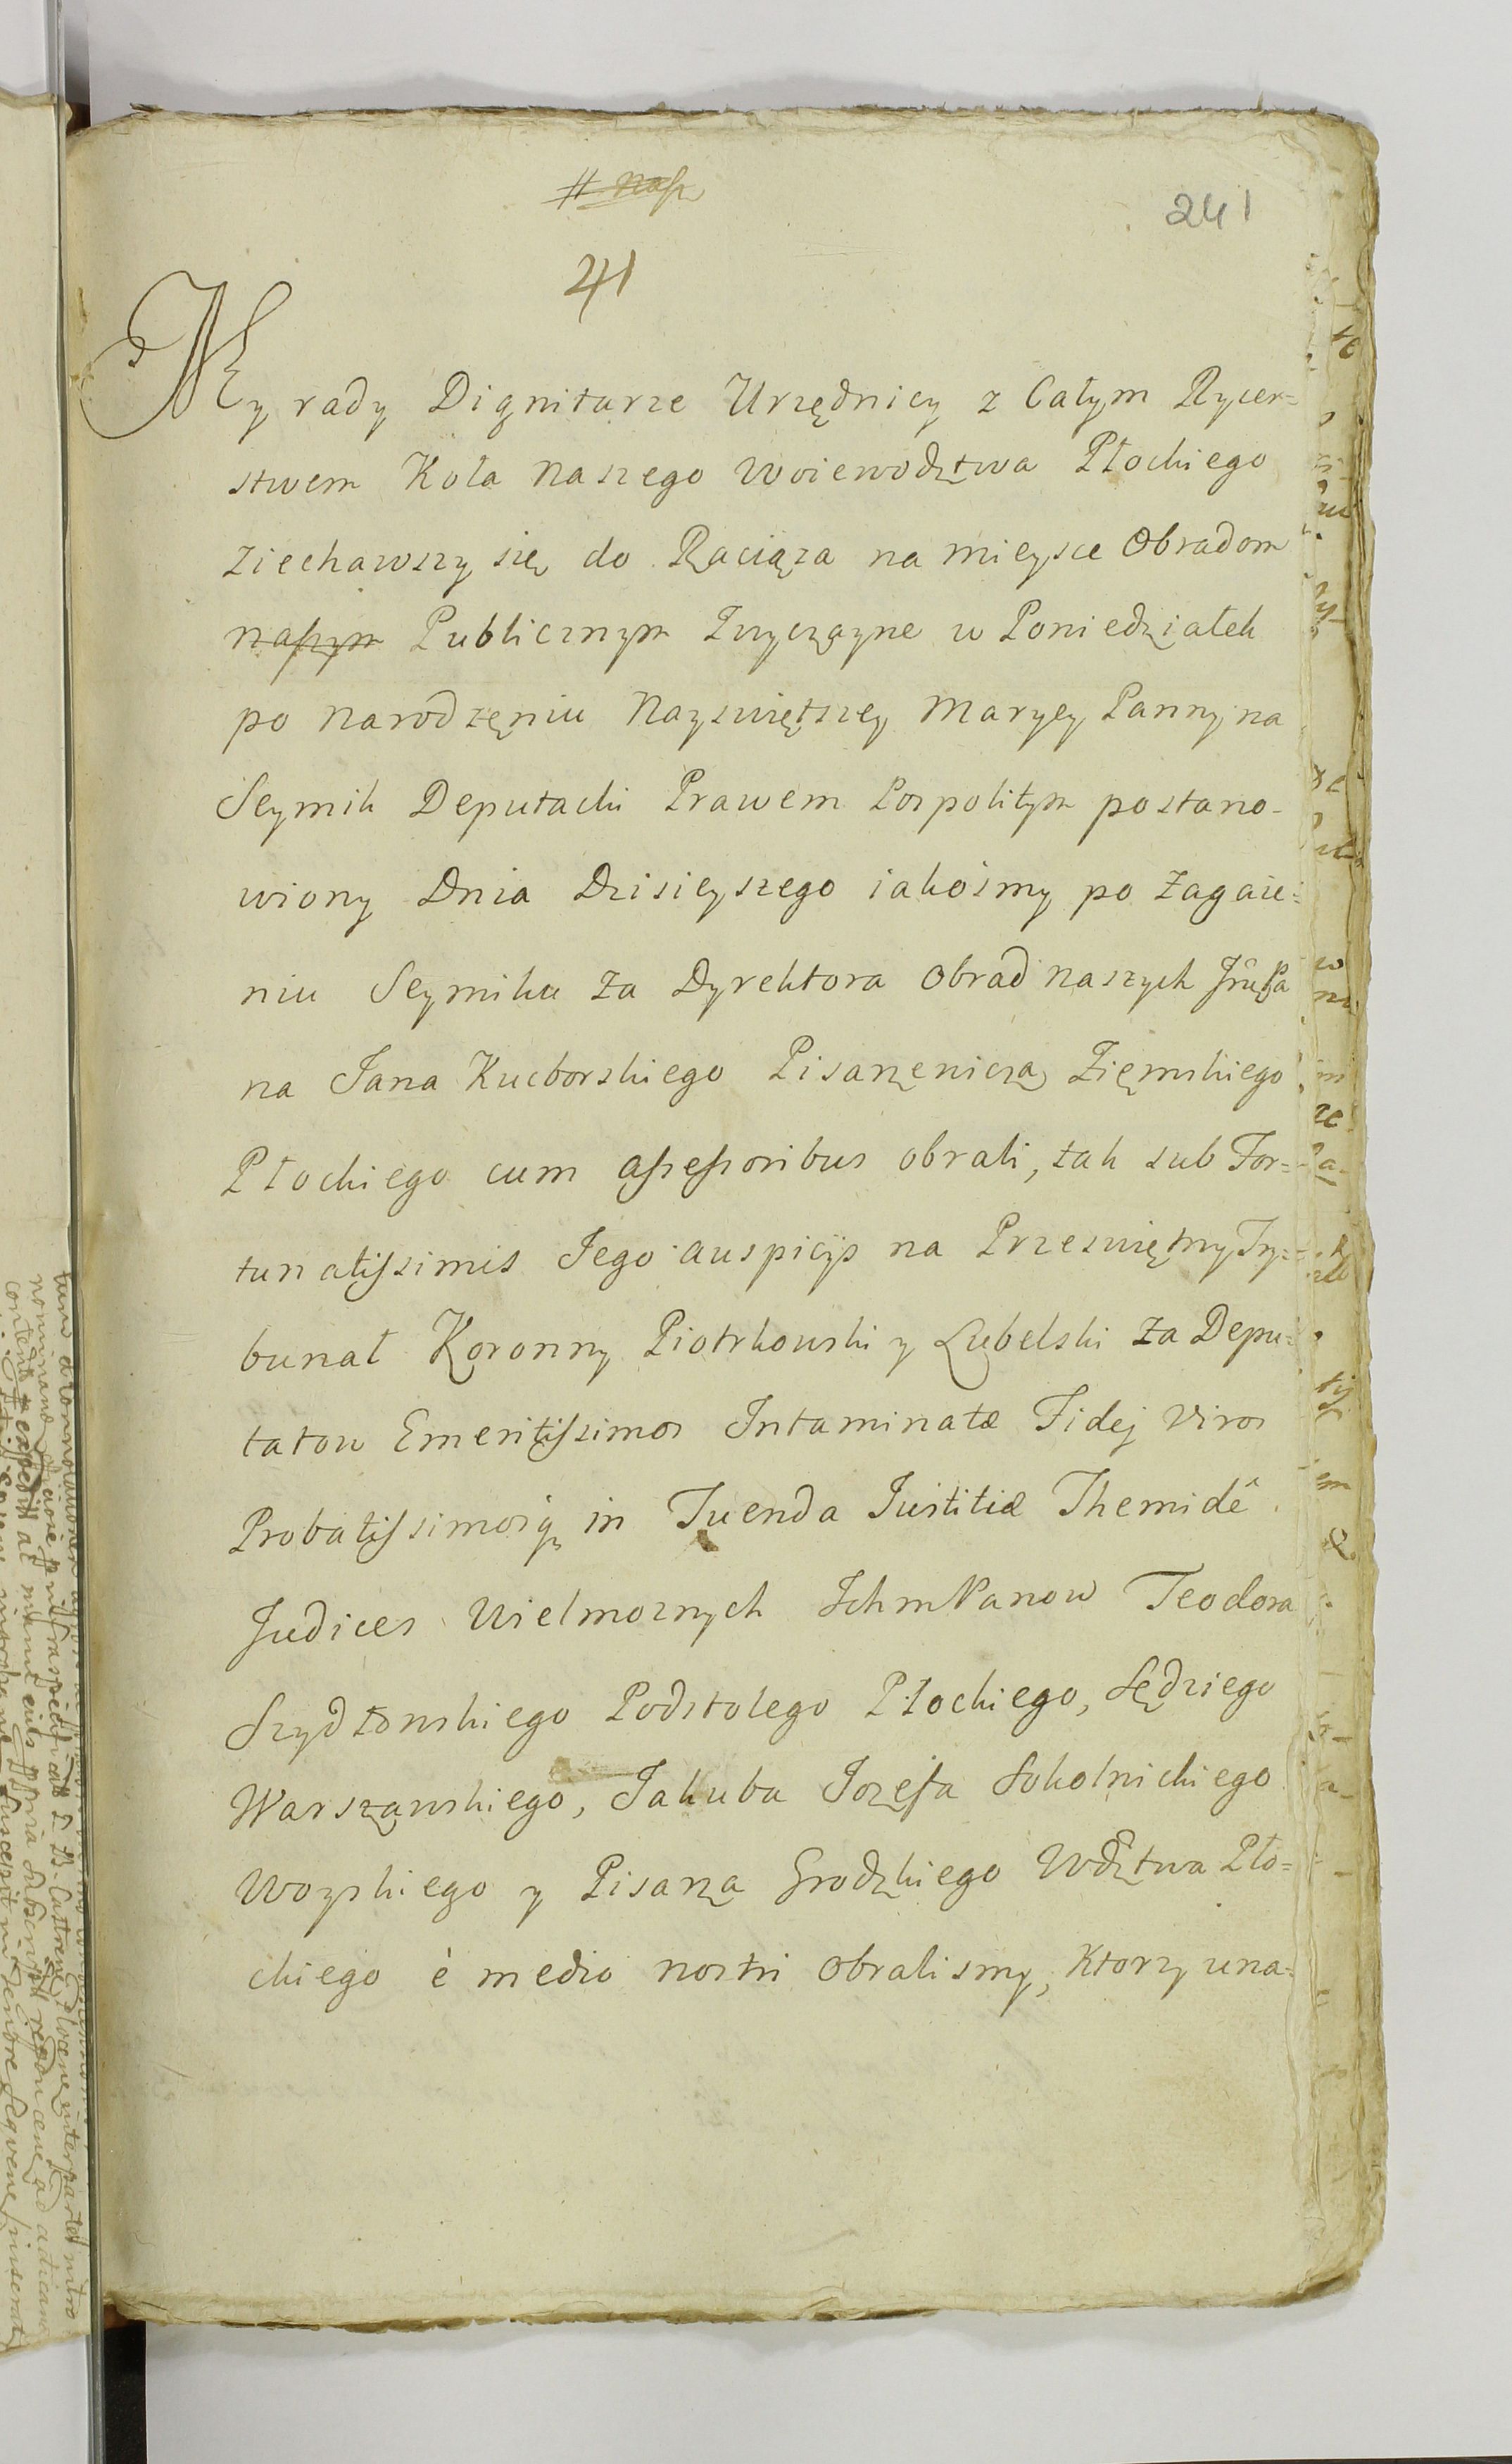 241
41
My rady Dignitarze Urzędnicy z Całym Rycer=
stwem Koła Naszego Woiewodztwa Płockiego
Ziechawszy się do Raciąża na mieysce Obradom
naszym Publicznym Zwyczayne w Poniedziałek
po Narodzęniu Nayswiętszey Maryey Panny na
Seymik Deputacki Prawem Pospolitym postano-
wiony Dnia Dzisieyszego iakośmy po Zagaie=
niu Seymiku Za Dyrektora Obrad naszych
na Jana Kucborskiego Pisarzenicza Ziemskiego
Płockiego cum assessoribus obrali, tak sub For=
tunatissimis Jego auspicijs na Przeswiętny Try=
bunał Koronny Piotrkowski y Lubelski Za Depu=
tatow Emeritissimos Intaminatæ Fidej Viros
Probatissimosq; in Tuenda Iustitiæ Themidê
Judices Wielmoznych Ichm Panow Teodora
Szydłowskiego Podstolego Płockiego, Sędziego
Warszawskiego, Jakuba Jozefa Sokolnickiego
Woyskiego y Pisarza Grodzkiego Wdztwa Pło=
ckiego è medio nostri Obralismy, Ktorzy una=